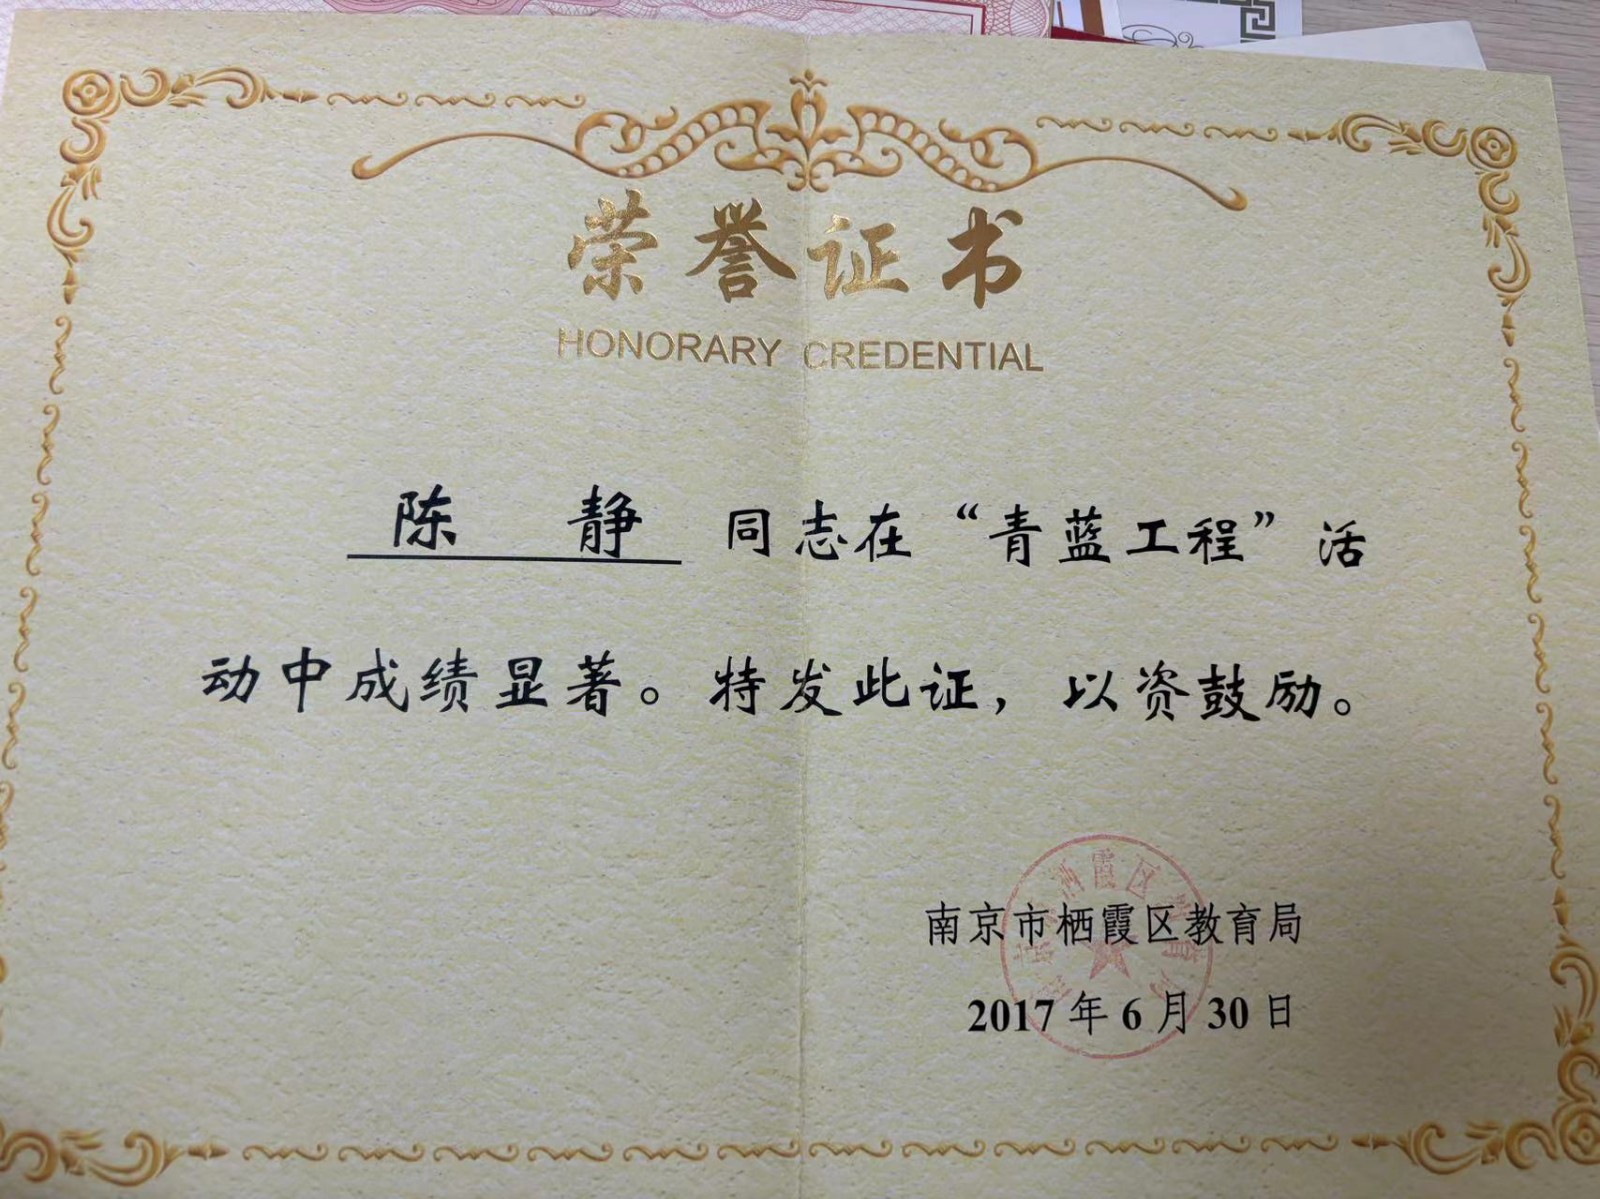 荣誉证书
HONORARY CREDENTIAL
陈 静 同志在“青蓝工程”活
动中成绩显著。特发此证，以资鼓励。
南京市栖霞区教育局
2017年6月30日